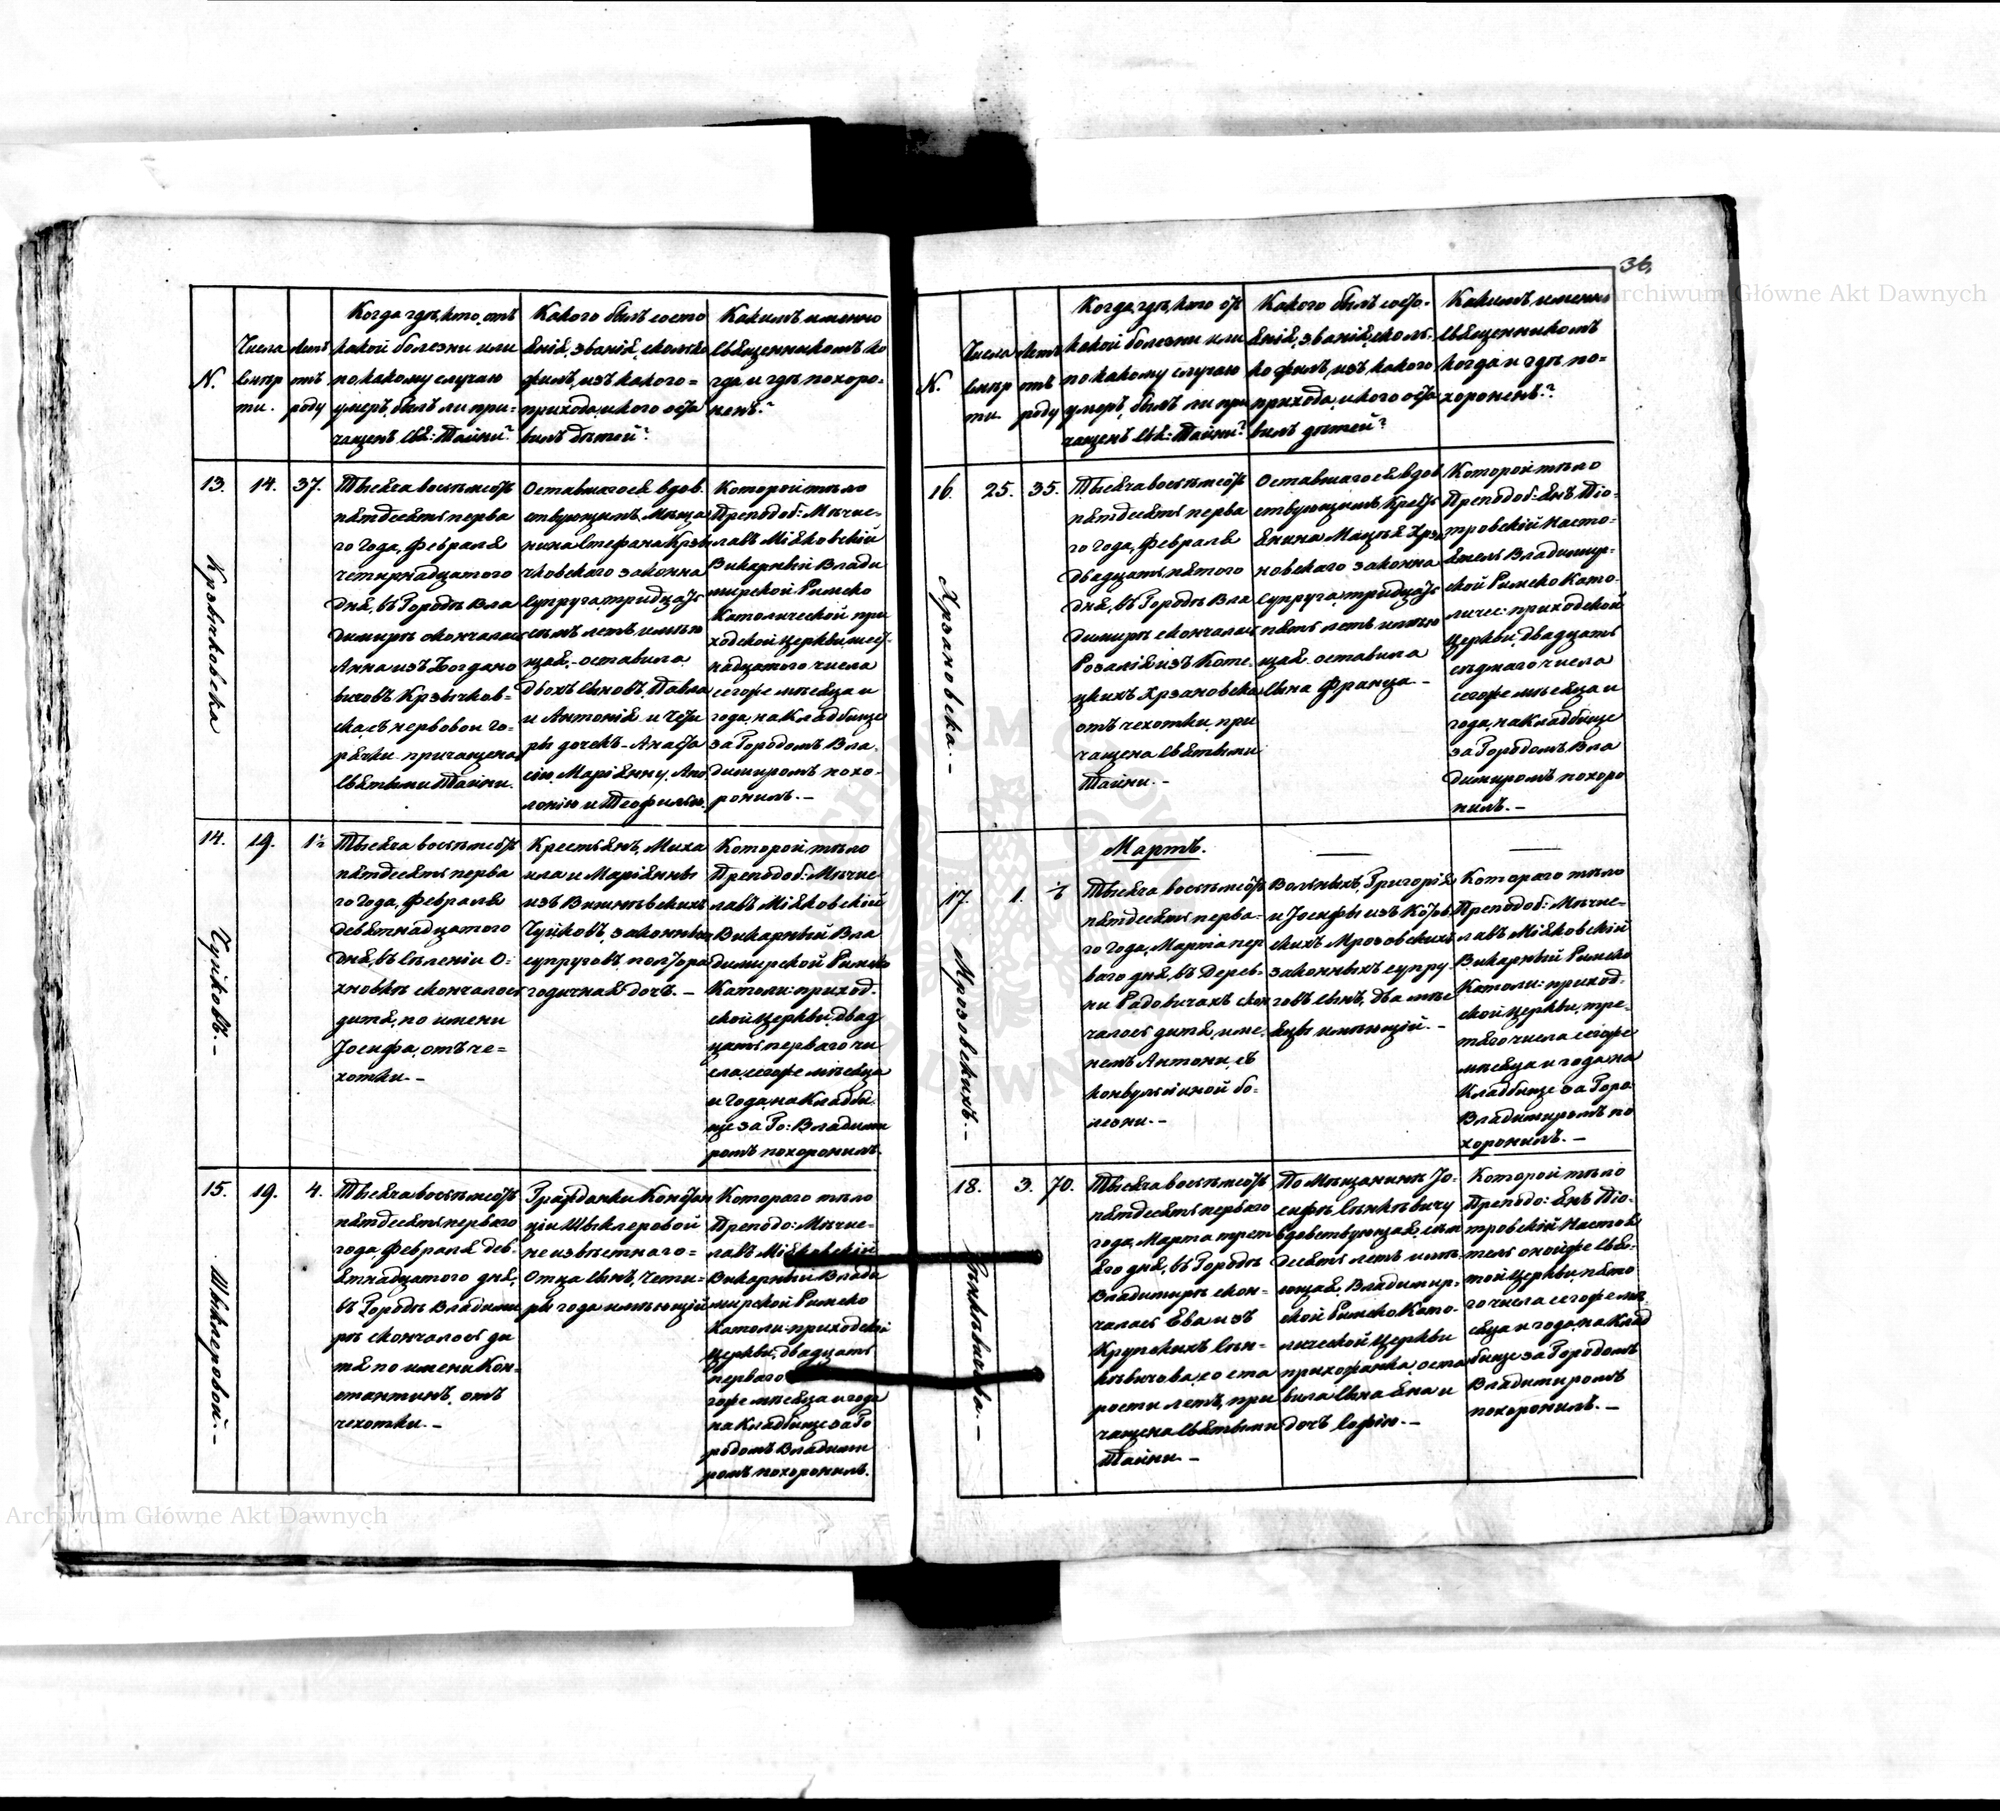 36.
N.
Числа смерти.
Лета отъ роду
Когда, где, кто, отъ
какой болезни или
по какому случаю
умеръ, былъ ли при-
чащенъ Свя: Тайни?
Какого былъ состо
янія, званія, сколько
прихода, и кого оста
вилъ детей?
Какимъ именно
священникомъ ко
гда и где похоро-
ненъ?
13.
14.
37.
Тысяча восемьсотъ
пятдесятъ перва
го года, Февраля
четирнадцатого
дня, въ Городе Вла
димире скончалась
Анна изъ Богдано
вичовъ Крзычков-
ска, съ нервовои го-
рячки причащена
Святыми Тайни.
Оставшагося вдов.
ствующимъ Меща
нина Стефана Крзы
чковскаго законна
супруга, тридцать
семь летъ имею
щая, оставила
двохъ сыновъ, Павла
и Антонія и чети
ры дочекъ - Анаста
сію, Маріянну, Апо
лонію и Теофилю.
Которой тело
Преподоб: Мечис-
лавъ Міяковскій
Викарный Влади
мирской Римско
Католической при
ходской Церкви, шест
надцатого числа
сегоже месяца и
года, на Кладбище
за Городомъ Вла-
димиромъ похо-
ронилъ. -
14.
19.
1½
Чуйковъ. -
Тысяча восемьсотъ
пятдесятъ перва
го года, Февраля
девятнадцатого
дня, въ селеніи О-
хновке скончалось
дитя, по имени
Іосифа, отъ че-
хотки. -
Крестьянъ, Миха
ила и Маріянны
изъ Вишневскихъ
Чуйковъ, законныхъ
супруговъ, полтора
годичная дочь. -
Которой тело
Преподоб: Мечис-
лавъ Міяковскій
Викарный Вла
димирской Римско
Католи: приход-
ской Церкви, двад
цать перваго чи
сла, сегоже месяца
и года, на Кладби-
ще за Го: Владими
ромъ похоронилъ.
15.
19.
4.
Шкклеровой. -
Тысяча восемьсотъ
пятдесятъ перваго
года, Февраля дев-
ятнадцатого дня,
въ Городе Владими
ре скончалось ди
тя по имени Кон-
стантинъ, отъ
чехотки. -
Гражданки Констан
ціи Шкклеровой
неизвестнаго -
Отца сынъ, чети-
ры года имеющій
Котораго тело
Преподо: Мечис-
лавъ Міяковскій
Викарный Влади
мирской Римско
Католи: приходской
Церкви, двадцать
перваго
гоже месяца и года
на Кладбище за Го
родомъ Владими
ромъ похоронилъ.
N.
Числа смерти.
Летъ отъ роду
Когда, где, кто отъ
какой болезни или
по какому случаю
умеръ, былъ ли при
чащенъ Свя: Тайни?
Какого былъ состо-
янія, званія, сколь-
прихода, и кого оста
вилъ детей?
Какимъ именно
священникомъ
когда и где по-
хороненъ?
16.
25.
35.
Хрзановска. -
Тысяча восемьсотъ
пятдесятъ перва
го года, Февраля
двадцать пятого
дня, въ Городе Вла
димире скончалась
Розалія изъ Коте-
цкихъ Хрзановска
отъ чехотки, при
чащена Святыми
Тайни. -
Оставшагося вдов
ствующимъ Крест
янина Мацея Хрза
новскаго законна
супруга, тридцать
пять летъ имею
щая, оставила
сына Франца. -
Которой тело
Преподоб: Янъ Піо-
тровскій Насто-
ятель Владимир-
ской Римско Като-
личес: приходской
Церкви, двадцать
седмаго числа
сегоже месяца и
года, на Кладбище
за Городомъ Вла
димиромъ похоро
нилъ. -
Мартъ.
17.
1.
Мрозовскихъ. -
Тысяча восемьсотъ
пятдесятъ перва-
го года, Марта пер
ваго дня, въ Дерев-
ни Радовичахъ скон
чалось дитя, име-
немъ Антони, съ
конвулсійной бо-
лезни. -
Вольныхъ, Григорія
и Іосифы изъ Котов
скихъ Мрозовскихъ
законныхъ супру-
говъ сынъ, два меся
яцы имеющій. -
Котораго тело
Преподоб: Мечис-
лавъ Міяковскій
Викарный Римско
Католи: приход-
ской Церкви, тре-
тяго числа сегоже
месяца и года на
Кладбище за Горо
Владимиромъ по
хоронилъ. -
18.
3.
70.
Тысяча восемьсотъ
пятдесятъ перваго
года, Марта трет
яго дня, въ Городе
Владимире скон-
чалась Ева изъ
Крупскихъ Сен-
кевичова, со ста
рости летъ, при
чащена Святыми
Тайни. -
По Мещанине Іо-
сифе Сенкевичу
вдовствующая, сем
десятъ летъ име-
ющая, Владимир-
ской Римско Като-
лической Церкви
прихожанка, оста
вила сына Яна и
дочь Софію. -
Которой тело
Преподо: Янъ Піо-
тровскій Настоя
тель онойже Свя-
той Церкви, пято
го числа сегоже ме-
сяца и года, на Клад
бище за Городомъ
Владимиромъ
похоронилъ. -
Archiwum Główne Akt Dawnych
Archiwum Główne Akt Dawnych